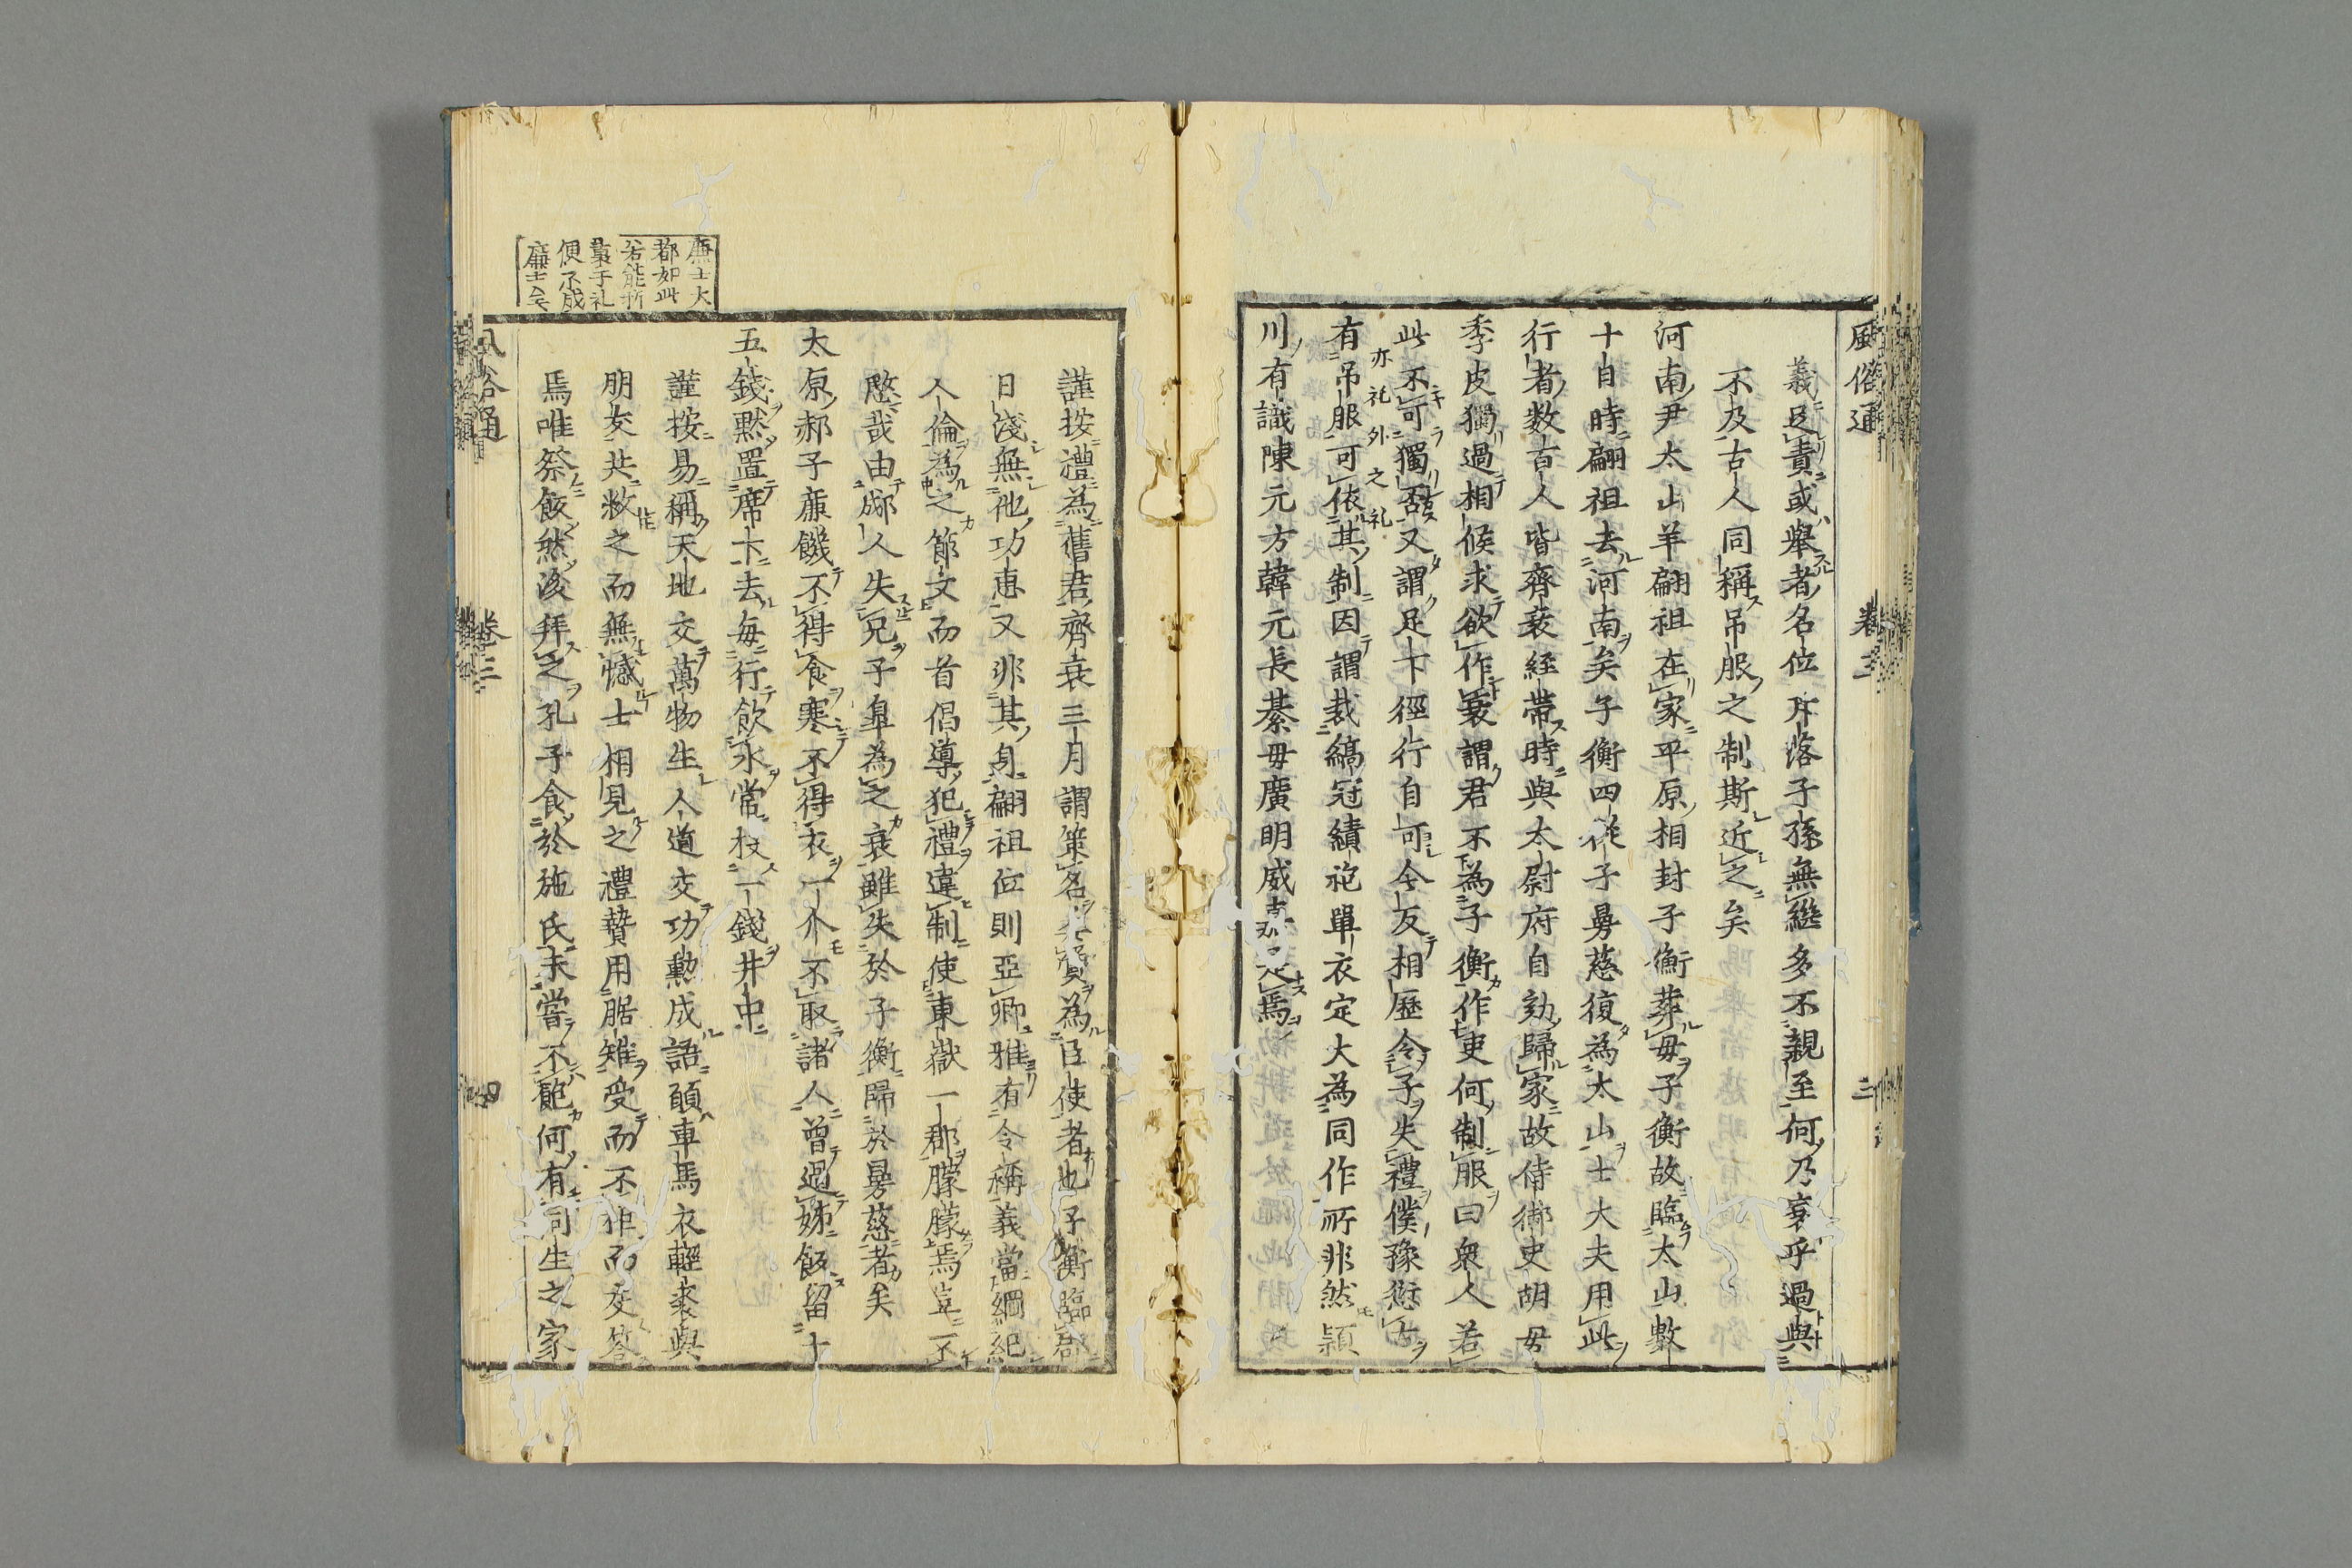 風俗通
卷三
三
義足責或舉者名位斥落子孫無繼多不親至何乃衰乎過與
不及古人同稱吊服之制斯近之矣
河南尹太山羊翩祖在家平原相封子衡葬母子衡故臨太山數
十日時翩祖去河南矣子衡四從子曼慈復為太山士大夫用此
行者数百人皆齊衰絰帶時與太尉府自劾歸家故侍御史胡毋
季皮獨過相候求欲作衰謂君不為子衡作吏何制服曰衆人若
此不可獨否又謂足下徑行自可今反相歷令子失禮僕豫愆古
亦礼外之礼
有吊服可依其制因謂裁縞冠績袍單衣定大為同作所非然頴
川有識陳元方韓元長綦毋廣明咸焉
謹按禮為舊君齊衰三月謂策名為臣使者也子衡臨郡
日淺無他功惠又非其身翩祖位則亞卿雅有令稱義當綱紀
人倫為之節文而首倡導犯禮違制使東嶽一郡朦朦焉豈不
愍哉由郕人失兄子臯為之衰雖失於子衡歸於曼慈者矣
太原郝子廉饑不得食寒不得衣一介不取諸人曾過姊飯留十
五錢默置席下去每行飲水常投一錢井中
謹按易稱天地交萬物生人道交功勳成語願車馬衣輕裘與
朋友共敝之而無憾士相見之禮贄用腒雉受而不拒而交答
焉唯祭飯然後拜之孔子食於施氏未嘗不飽何有同生之家
廉士大
都如此
若能折
衷于礼
便不成
廉士矣
風俗通
卷三
四